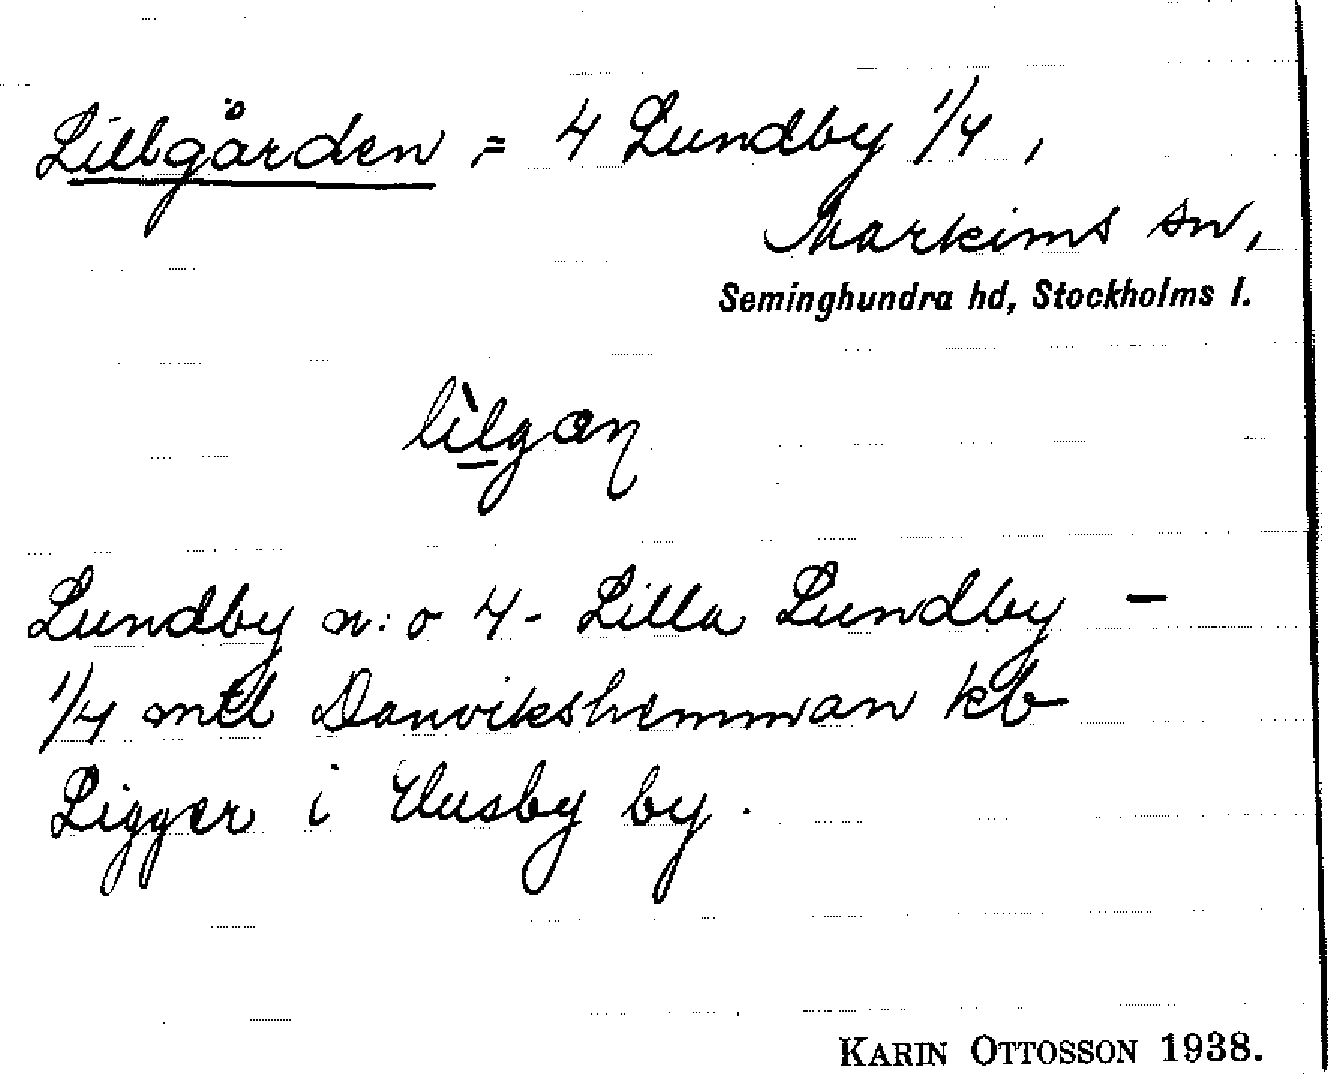 Lillgården = 4 Lundby 1/4,
Markims sn,
Seminghundra hd, Stockholms l.
lìlgaɳ
Lundby n:o 4 - Lilla Lundby -
1/4 mtl Danvikshemman kb
Ligger i Husby by.
KARIN OTTOSSON 1938.